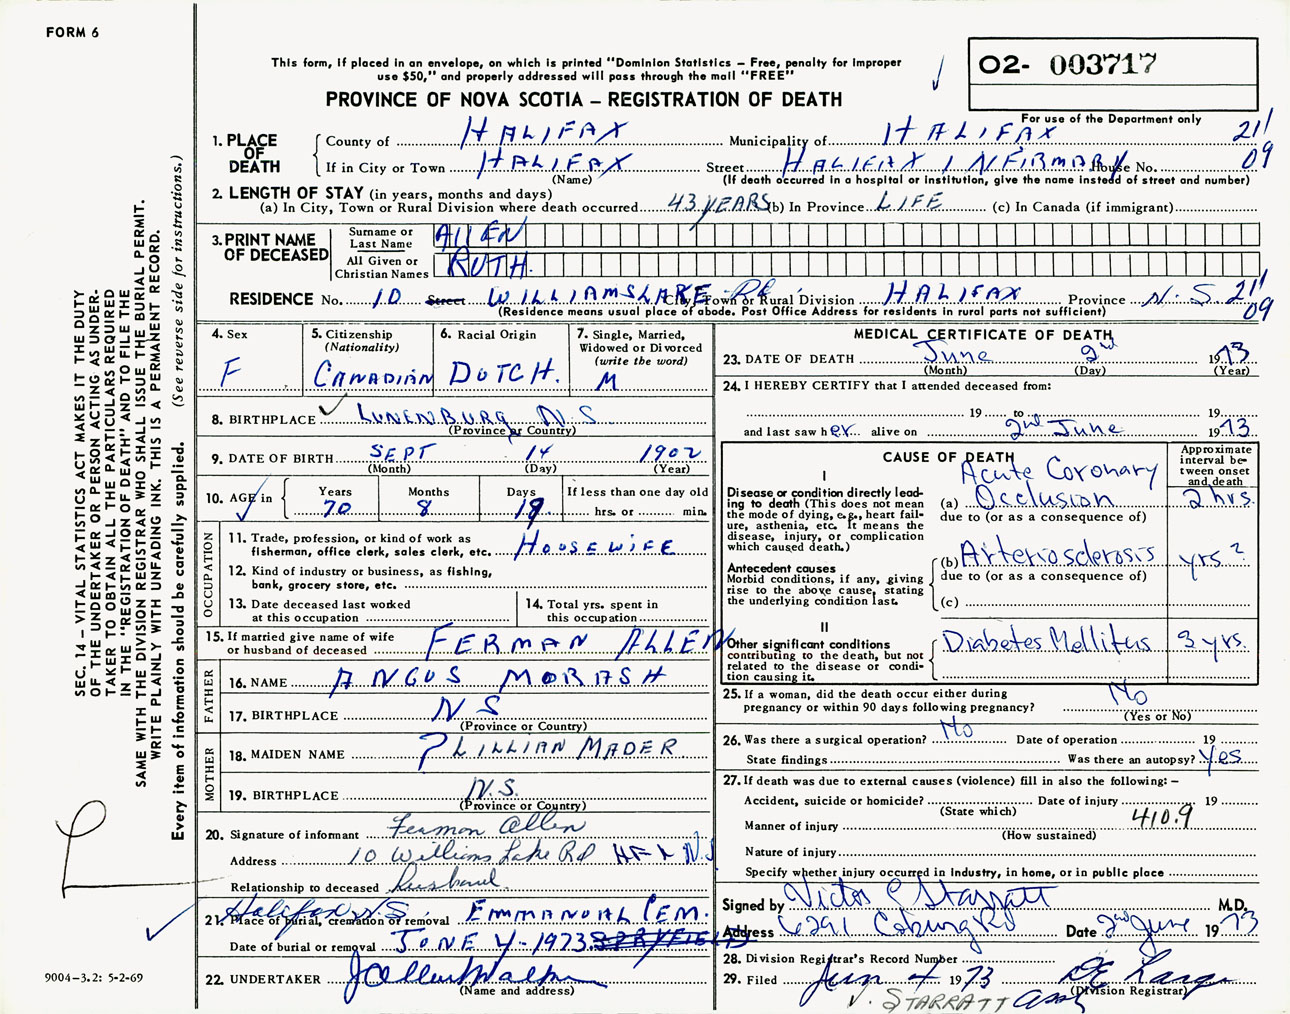 FORM 6
This form, if placed in an envelope, on which is printed "Dominion Statistics – Free, penalty for improper
use $50," and properly addressed will pass through the mail "FREE"
PROVINCE OF NOVA SCOTIA – REGISTRATION OF DEATH
02- 003717
For use of the Department only
SEC. 14 – VITAL STATISTICS ACT MAKES IT THE DUTY
OF THE UNDERTAKER OR PERSON ACTING AS UNDER-
TAKER TO OBTAIN ALL THE PARTICULARS REQUIRED
IN THE "REGISTRATION OF DEATH" AND TO FILE THE
SAME WITH THE DIVISION REGISTRAR WHO SHALL ISSUE THE BURIAL PERMIT.
WRITE PLAINLY WITH UNFADING INK. THIS IS A PERMANENT RECORD.
Every item of information should be carefully supplied. (See reverse side for instructions.)
1. PLACE OF DEATH
County of HALIFAX Municipality of HALIFAX 211
If in City or Town HALIFAX Street HALIFAX INFIRMARY House No. 09
(Name) (If death occurred in a hospital or institution, give the name instead of street and number)
2. LENGTH OF STAY (in years, months and days)
(a) In City, Town or Rural Division where death occurred 43 YEARS (b) In Province LIFE (c) In Canada (if immigrant)
3. PRINT NAME OF DECEASED
Surname or Last Name ALLEN
All Given or Christian Names RUTH.
RESIDENCE No. 10 Street WILLIAMSLAKE Rd. City, Town or Rural Division HALIFAX Province N.S. 211
(Residence means usual place of abode. Post Office Address for residents in rural parts not sufficient) 09
4. Sex F
5. Citizenship (Nationality) CANADIAN
6. Racial Origin DUTCH.
7. Single, Married, Widowed or Divorced (write the word) M
8. BIRTHPLACE LUNENBURG N.S.
(Province or Country)
9. DATE OF BIRTH SEPT 14 1902
(Month) (Day) (Year)
10. AGE in Years 70 Months 8 Days 19 If less than one day old hrs. or min.
OCCUPATION
11. Trade, profession, or kind of work as
fisherman, office clerk, sales clerk, etc. HOUSEWIFE
12. Kind of industry or business, as fishing,
bank, grocery store, etc.
13. Date deceased last worked
at this occupation
14. Total yrs. spent in
this occupation
15. If married give name of wife
or husband of deceased FERMAN ALLEN
FATHER
16. NAME ANGUS MORASH
17. BIRTHPLACE N S
(Province or Country)
MOTHER
18. MAIDEN NAME ? LILLIAN MADER
19. BIRTHPLACE N.S.
(Province or Country)
20. Signature of informant Fermon Allen
Address 10 Williams Lake RD HFX N.S
Relationship to deceased Husband.
Halifax N.S.
21. Place of burial, cremation or removal EMMANUAL CEM.
Date of burial or removal JUNE 4-1973 SPRYFIELD
22. UNDERTAKER
(Name and address)
9004–3.2: 5-2-69
MEDICAL CERTIFICATE OF DEATH
23. DATE OF DEATH June 2nd 1973
(Month) (Day) (Year)
24. I HEREBY CERTIFY that I attended deceased from:
19 to 19
and last saw her alive on 2nd June 1973
CAUSE OF DEATH
Approximate interval between onset and death
I
Disease or condition directly lead-
ing to death (This does not mean
the mode of dying, e.g., heart fail-
ure, asthenia, etc. It means the
disease, injury, or complication
which caused death.)
(a) Acute Coronary Occlusion 2 hrs.
due to (or as a consequence of)
Antecedent causes
Morbid conditions, if any, giving
rise to the above cause, stating
the underlying condition last.
(b) Arteriosclerosis yrs ?
due to (or as a consequence of)
(c)
II
Other significant conditions
contributing to the death, but not
related to the disease or condi-
tion causing it.
Diabetes Mellitus 3 yrs.
25. If a woman, did the death occur either during
pregnancy or within 90 days following pregnancy? No
(Yes or No)
26. Was there a surgical operation? No Date of operation 19
State findings Was there an autopsy? Yes
27. If death was due to external causes (violence) fill in also the following:–
Accident, suicide or homicide? Date of injury 19
(State which)
Manner of injury 410.9
(How sustained)
Nature of injury
Specify whether injury occurred in industry, in home, or in public place
Signed by Victor C Starratt M.D.
Address 6291 Coburg Rd Date 2nd June 1973
28. Division Registrar's Record Number
29. Filed Jun 4 1973
(Division Registrar)
V. STARRATT